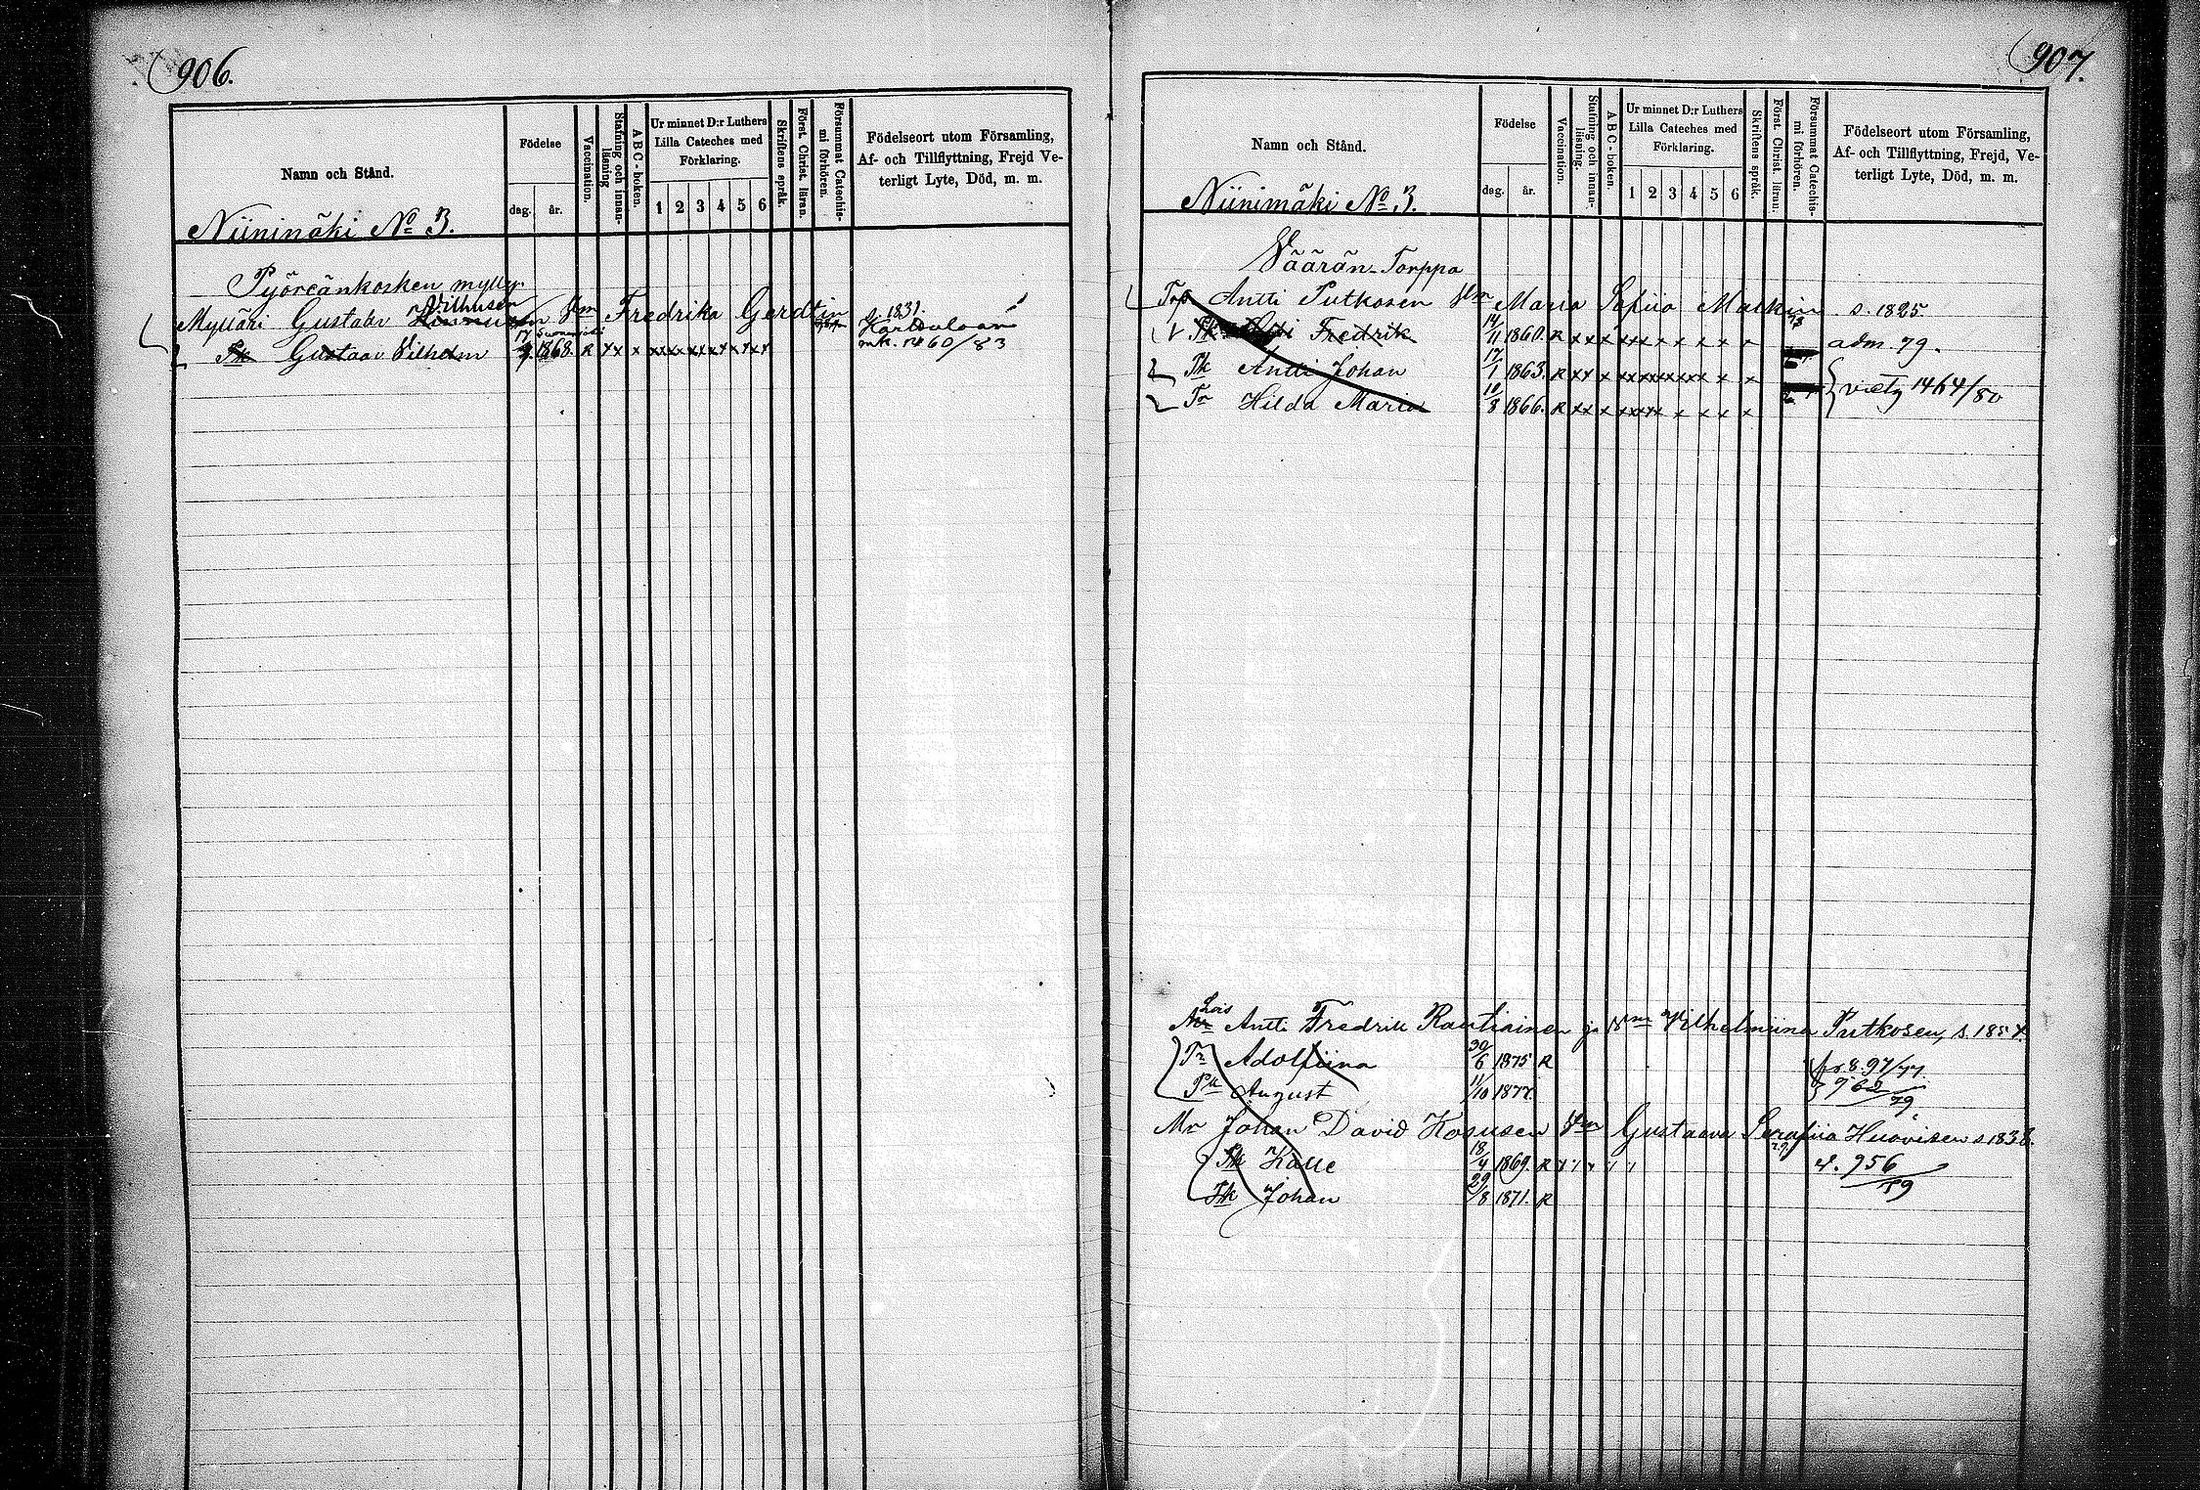 906.
Namn och Stånd.
Födelse
dag. år.
Vaccination.
Stafning och innan-läsning
ABC-boken.
Ur minnet D:r Luthers Lilla Cateches med Förklaring.
1 2 3 4 5 6
Skriftens språk.
Först. Christ. läran.
Försummat Catechis-mi förhören.
Födelseort utom Församling, Af- och Tillflyttning, Frejd Ve-terligt Lyte, Död, m. m.
Niinimäki No 3.
Pyöreänkosken mylly.
Vilhusen 1831.
Mylläri Gustabr Hm Fredrika Gerdtin
Pk Gustaav Vilhelm 17 1868. R x x x x x x x x x mk. 1460/83
907.
Namn och Stånd.
Födelse
dag. år.
Vaccination.
Stafning och innan-läsning.
ABC-boken.
Ur minnet D:r Luthers Lilla Cateches med Förklaring.
1 2 3 4 5 6
Skriftens språk.
Först. Christ. läran.
Försummat Catechis-mi förhören.
Födelseort utom Församling, Af- och Tillflyttning, Frejd, Ve-terligt Lyte, Död, m. m.
Niinimäki No 3.
Väärän-Torppa
Torp Antti Putkosen Hm Maria Sofiia Malkin s. 1825
Fredrik 14/11 1860. R x x x x x x x x x adm. 79.
Pk Antti Johan 17/1 1863. R x x x x x x x x x
Tr Hilda Maria 10/8 1866. R x x x x x x x x x 1464/80
Lois
Antti Fredrik Rautiainen ja Vm Vilhelmiina Putkosen, s. 1854.
Tr Adolfiina 30/6 1875 R fr. 8.97/77.
Pk August 11/10 1877. 962/79.
Mr Johan David Kosusen Hm Gustaava Serafiia Huovisen s. 1838.
Pk Kalle 18/4 1869. R x x x v. 956/79
Pk Johan 29/8 1871. R